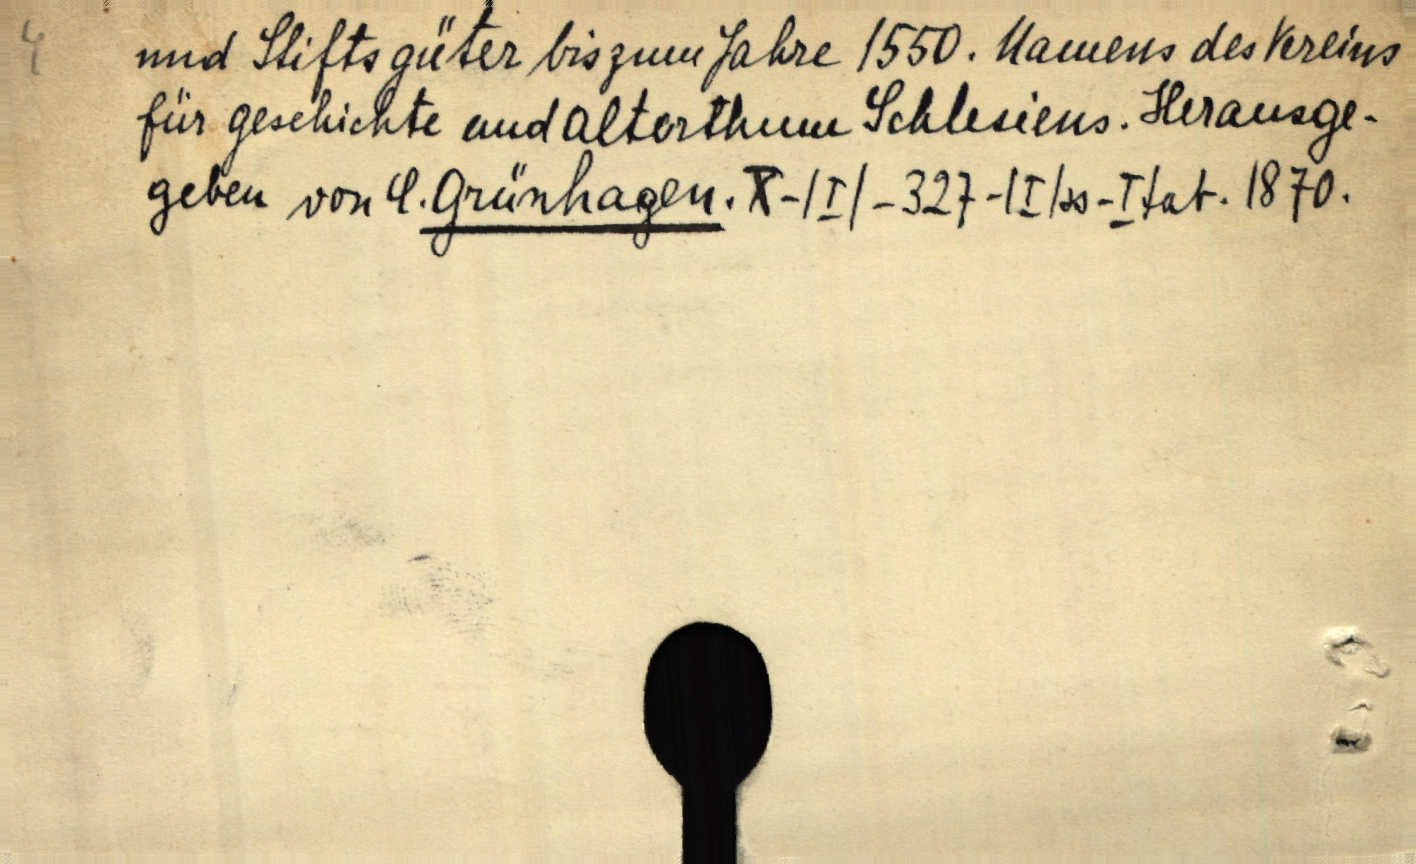 4
und Stiftsgüter bis zum Jahre 1550. Namens des Vereins
für geschichte und Alterthum Schlesiens. Herausge-
geben von C. Grünhagen. X-/I/-327-/I/ss-I tab. 1870.